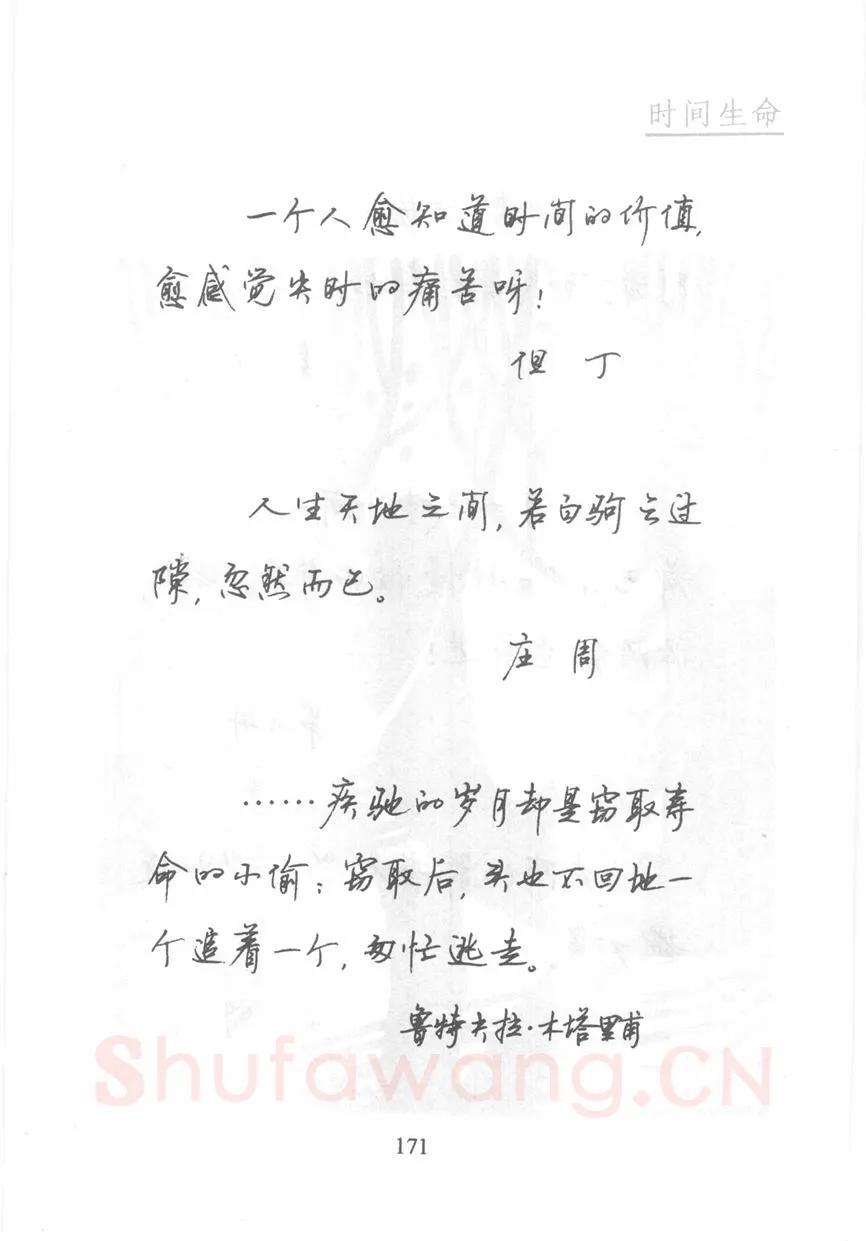 时间生命
一个人愈知道时间的价值,
愈感觉失时的痛苦呀!
但 丁
人生天地之间,若白驹之过
隙,忽然而已。
庄 周
……疾驰的岁月却是窃取寿
命的小偷:窃取后,头也不回地一
个追着一个,匆忙逃走。
鲁特夫拉·木塔里甫
Shufawang.CN
171